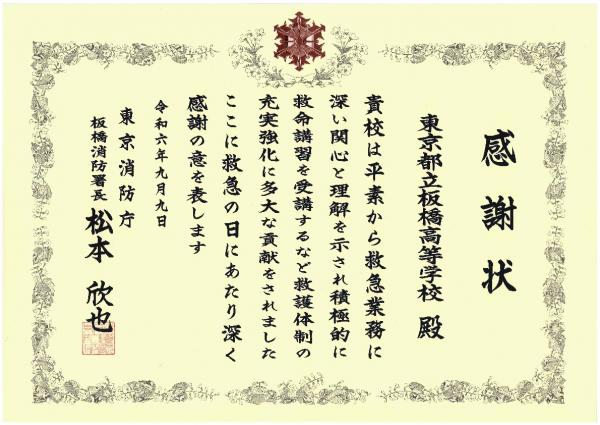 感謝状
東京都立板橋高等学校 殿
貴校は平素から救急業務に
深い関心と理解を示され積極的に
救命講習を受講するなど救護体制の
充実強化に多大な貢献をされました
ここに救急の日にあたり深く
感謝の意を表します
令和六年九月九日
東京消防庁
板橋消防署長 松本 欣也